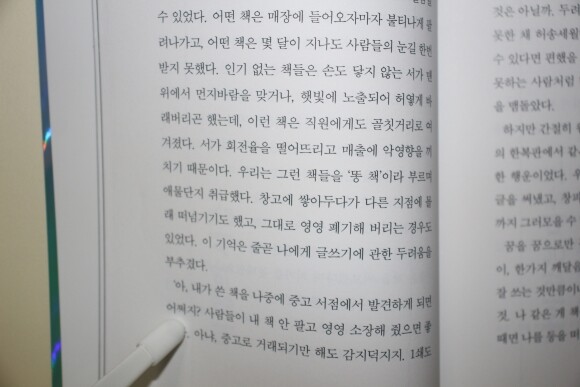 수 있었다. 어떤 책은 매장에 들어오자마자 불티나게 팔
려나가고, 어떤 책은 몇 달이 지나도 사람들의 눈길 한번
받지 못했다. 인기 없는 책들은 손도 닿지 않는 서가 맨
위에서 먼지바람을 맞거나, 햇빛에 노출되어 허옇게 바
래버리곤 했는데, 이런 책은 직원에게도 골칫거리로 여
겨졌다. 서가 회전율을 떨어뜨리고 매출에 악영향을 끼
치기 때문이다. 우리는 그런 책들을 '똥 책'이라 부르며
애물단지 취급했다. 창고에 쌓아두다가 다른 지점에 몰
래 떠넘기기도 했고, 그대로 영영 폐기해 버리는 경우도
있었다. 이 기억은 줄곧 나에게 글쓰기에 관한 두려움을
부추겼다.
'아, 내가 쓴 책을 나중에 중고 서점에서 발견하게 되면
어쩌지? 사람들이 내 책 안 팔고 영영 소장해 줬으면 좋
아냐, 중고로 거래되기만 해도 감지덕지지. 1쇄도
것은 아닐까. 두려
못한 채 허송세월
수 있다면 편했을
못하는 사람처럼
을 맴돌았다.
하지만 간절히
의 한복판에서 같
한 행운이었다.
글을 써냈고, 창피
까지 그러모을 수
꿈을 꿈으로만
이, 한가지 깨달
잘 쓰는 것만큼이
것. 나 같은 게 책
때면 나를 등을 떠